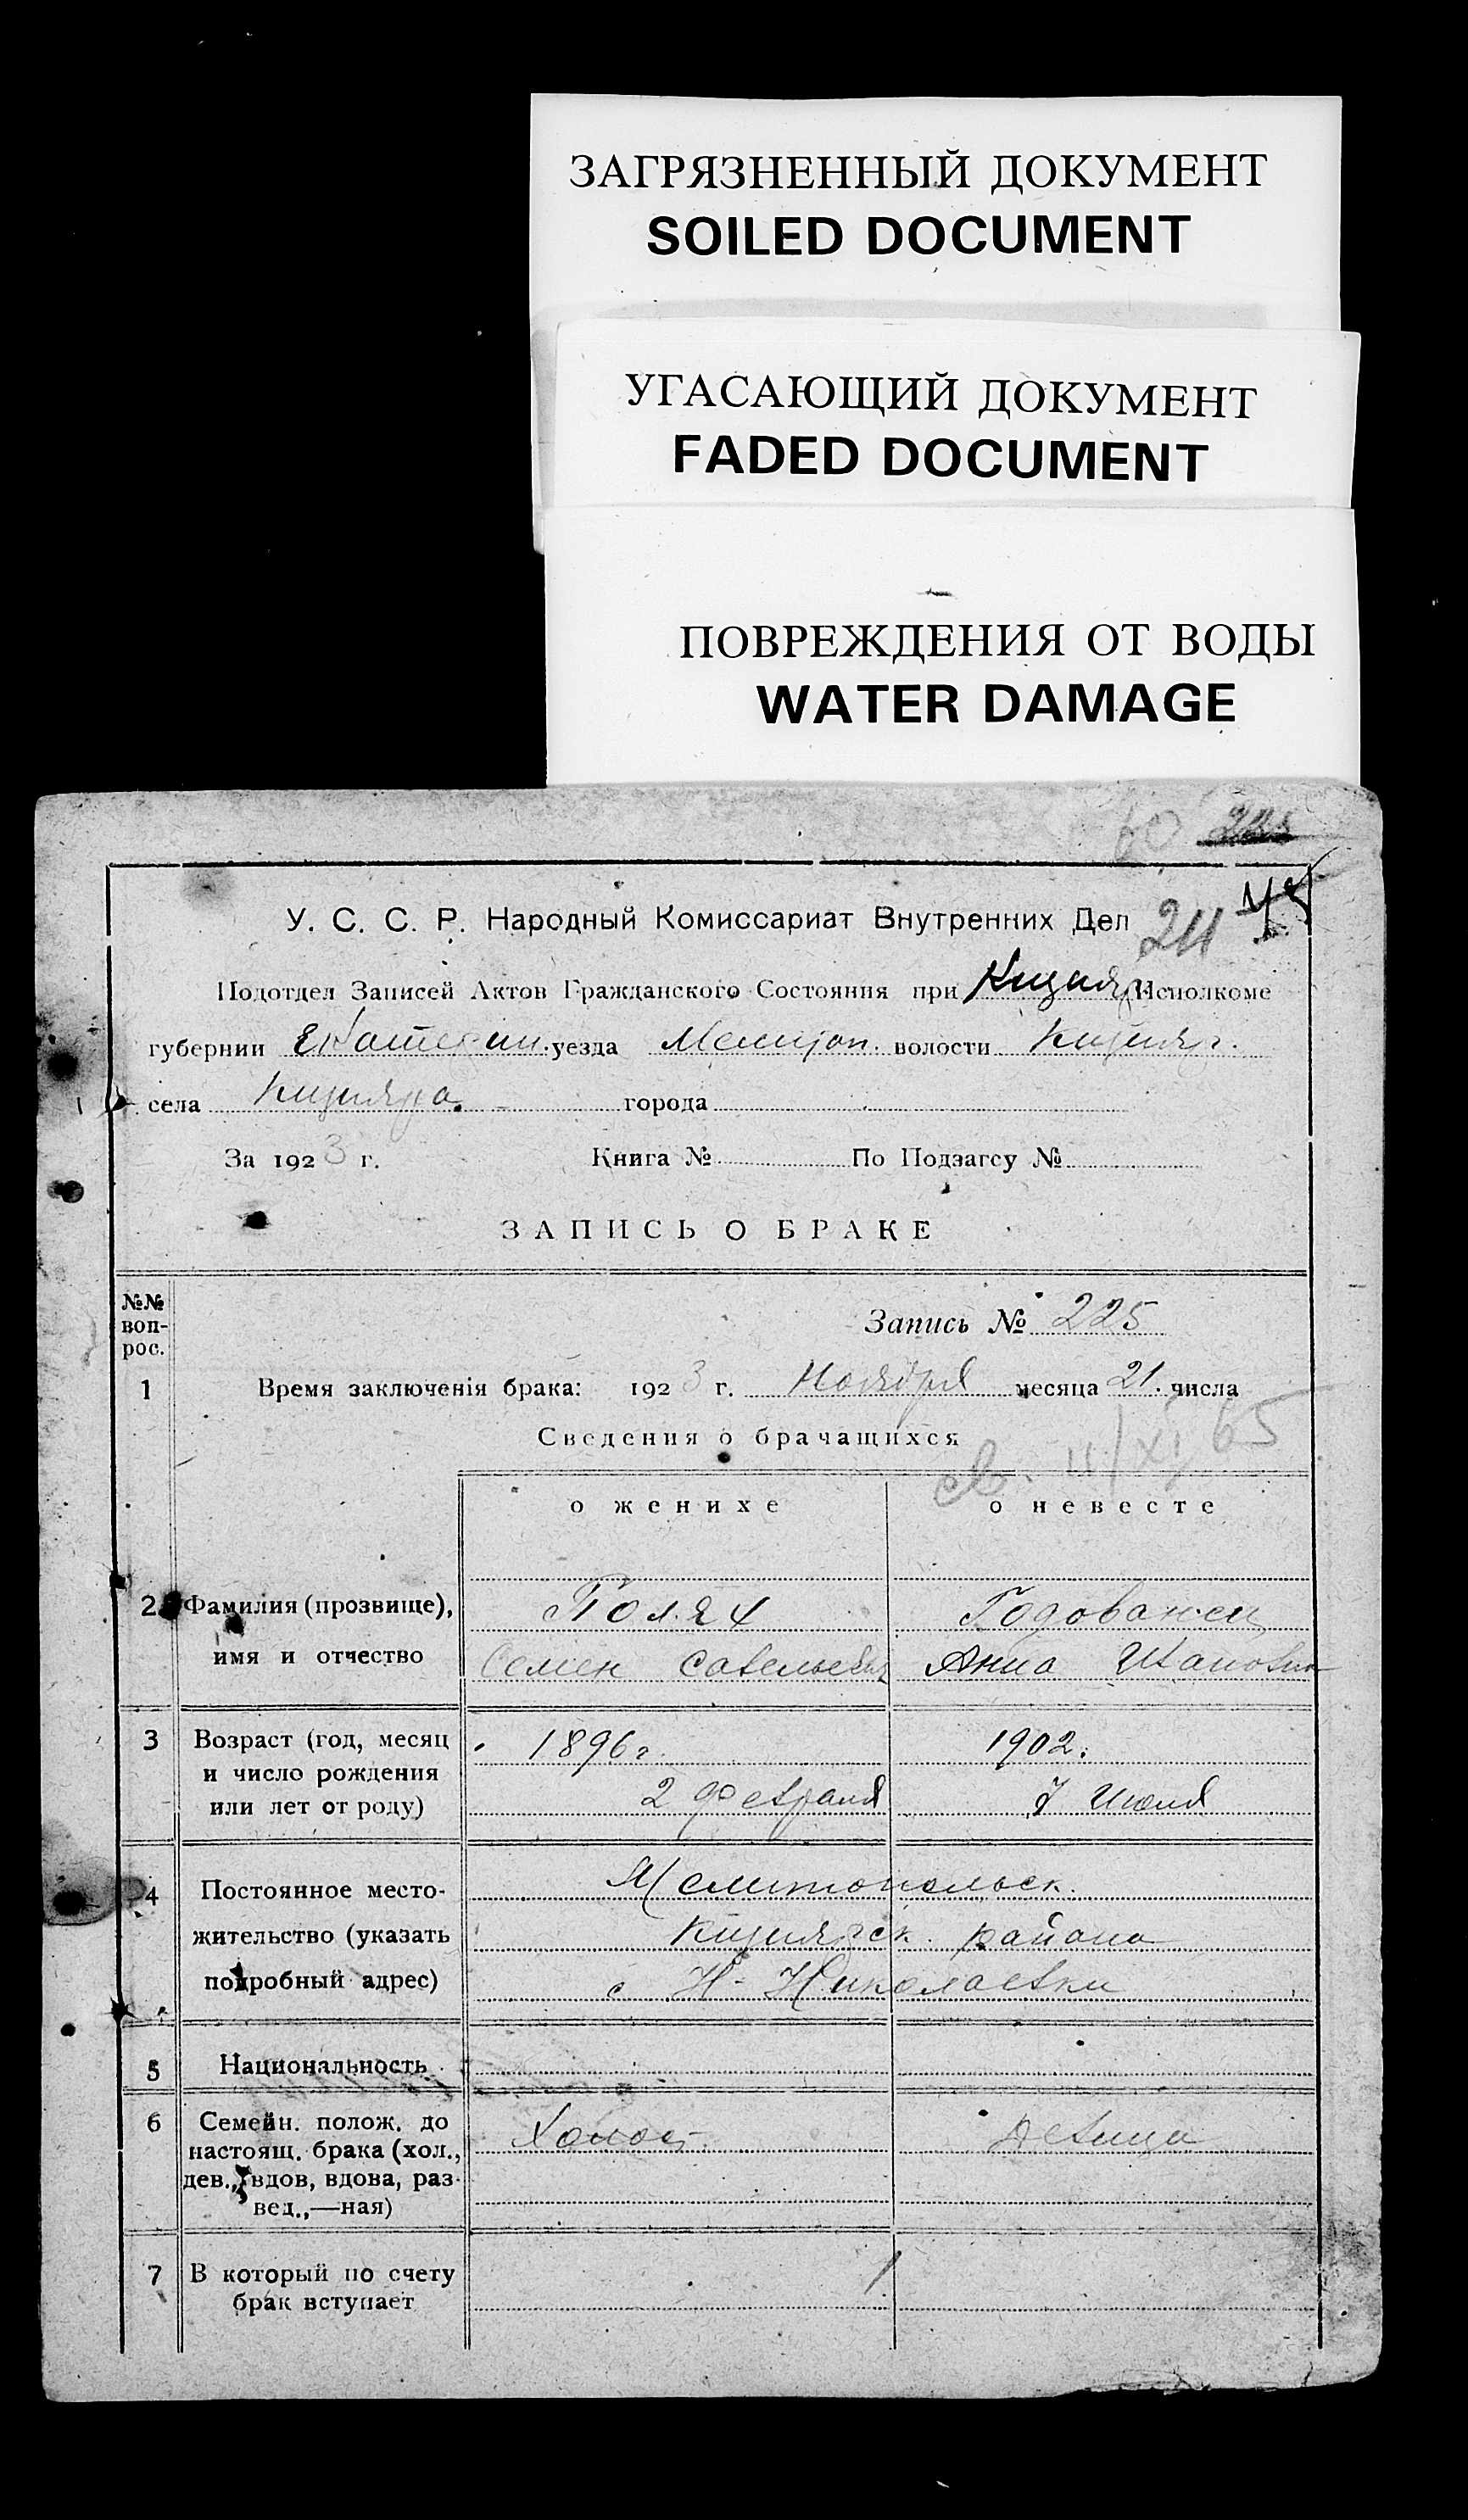 ЗАГРЯЗНЕННЫЙ ДОКУМЕНТ
SOILED DOCUMENT
УГАСАЮЩИЙ ДОКУМЕНТ
FADED DOCUMENT
ПОВРЕЖДЕНИЯ ОТ ВОДЫ
WATER DAMAGE
60
У. С. С. Р. Народный Комиссариат Внутренних Дел
Подотдел Записей Актов Гражданского Состояния при Кизияр. Исполкоме
губернии Екатерин. уезда Мелитоп. волости Кизияр.
села Кизияра. города
За 1923 г. Книга № По Подзагсу №
ЗАПИСЬ О БРАКЕ
№№ воп-рос.
Запись № 225
1 Время заключенія брака: 1923 г. Ноября месяца 21. числа
Сведения о брачащихся
о женихе о невесте
2 Фамилия (прозвище), Полях Годованец
имя и отчество Семен Савельевич Анна Ивановна
3 Возраст (год, месяц 1896 г. 1902.
и число рождения
или лет от роду) 2 февраля 7 Июля
4 Постоянное место- Мелитопольск.
жительство (указать Кизиярск. района
подробный адрес) с Н-Николаевки
5 Национальность
6 Семейн. полож. до Холост Девица
настоящ. брака (хол.,
дев., вдов, вдова, раз-
вед.,—ная)
7 В который по счету 1
брак вступает